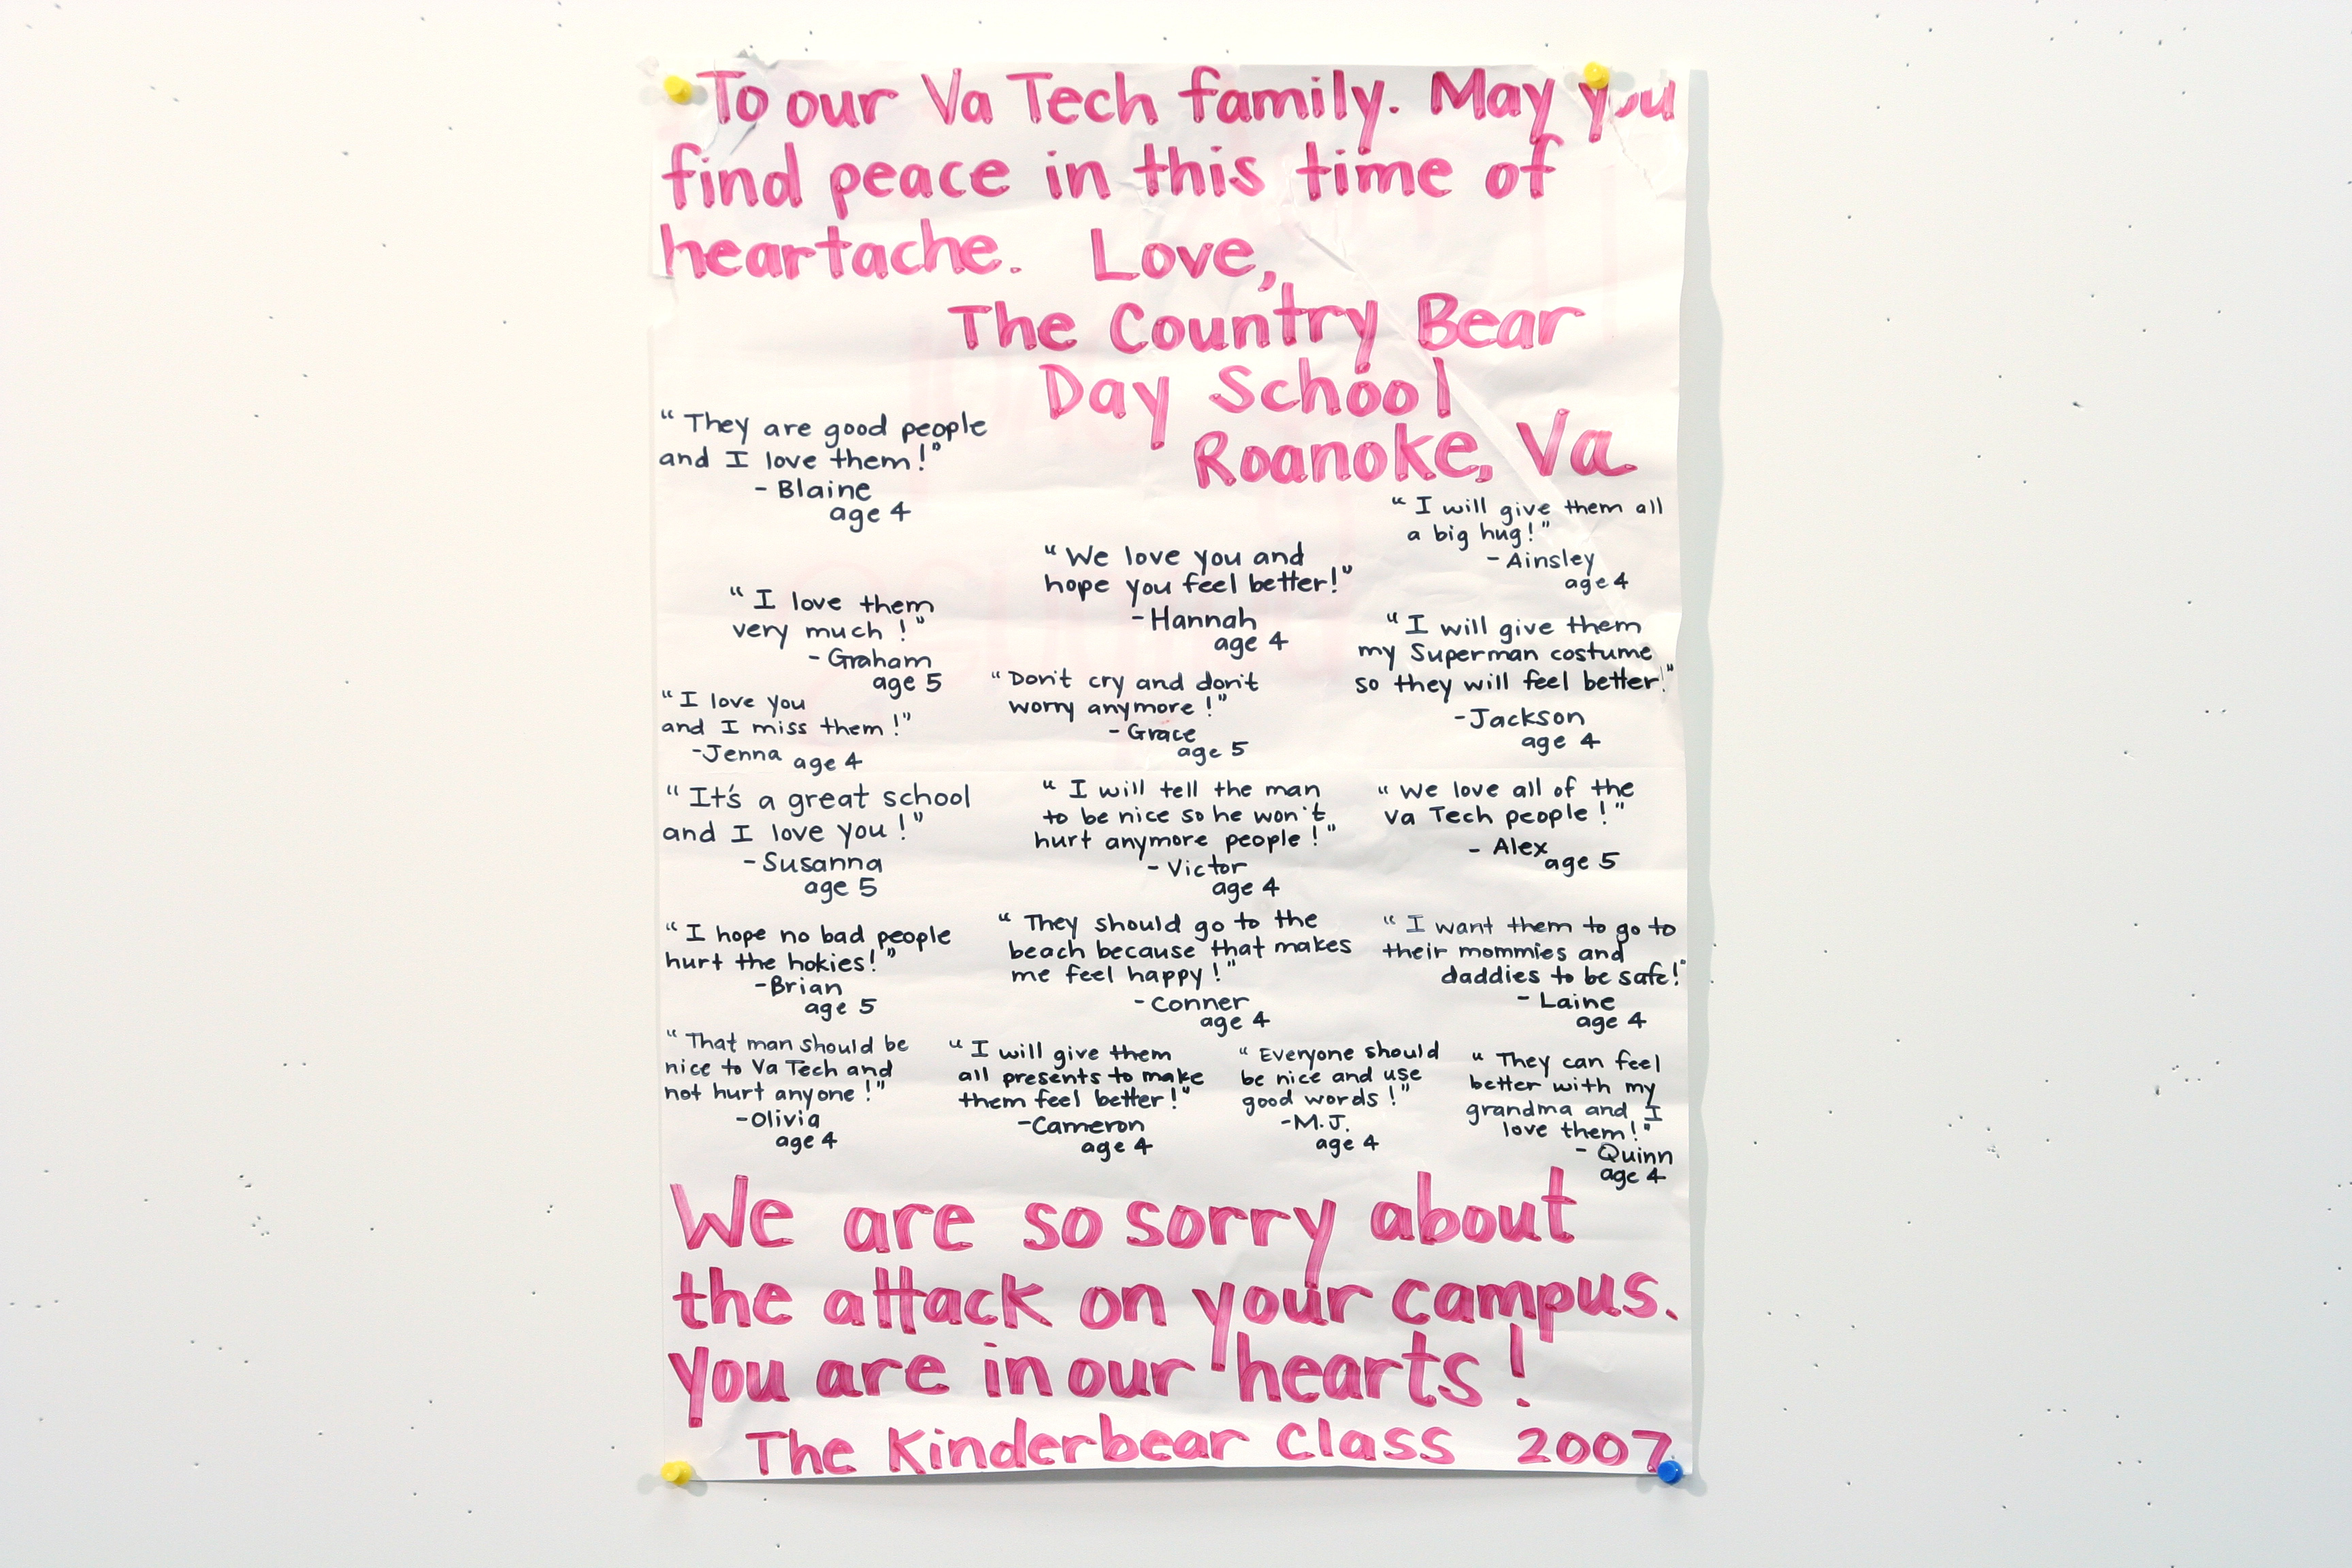 To our Va Tech family. May you
find peace in this time of
heartache. Love,
The Country Bear
Day School
Roanoke, Va
"They are good people
and I love them!"
- Blaine
age 4
"I will give them all
a big hug!"
- Ainsley
age 4
"We love you and
hope you feel better!"
- Hannah
age 4
"I love them
very much!"
- Graham
age 5
"I will give them
my Superman costume
so they will feel better!"
- Jackson
age 4
"I love you
and I miss them!"
- Jenna age 4
"Don't cry and don't
worry anymore!"
- Grace
age 5
"It's a great school
and I love you!"
- Susanna
age 5
"I will tell the man
to be nice so he won't
hurt anymore people!"
- Victor
age 4
"We love all of the
Va Tech people!"
- Alex
age 5
"I hope no bad people
hurt the hokies!"
- Brian
age 5
"They should go to the
beach because that makes
me feel happy!"
- Conner
age 4
"I want them to go to
their mommies and
daddies to be safe!"
- Laine
age 4
"That man should be
nice to Va Tech and
not hurt anyone!"
- Olivia
age 4
"I will give them
all presents to make
them feel better!"
- Cameron
age 4
"Everyone should
be nice and use
good words!"
- M.J.
age 4
"They can feel
better with my
grandma and I
love them!"
- Quinn
age 4
We are so sorry about
the attack on your campus.
you are in our hearts!
The Kinderbear Class 2007